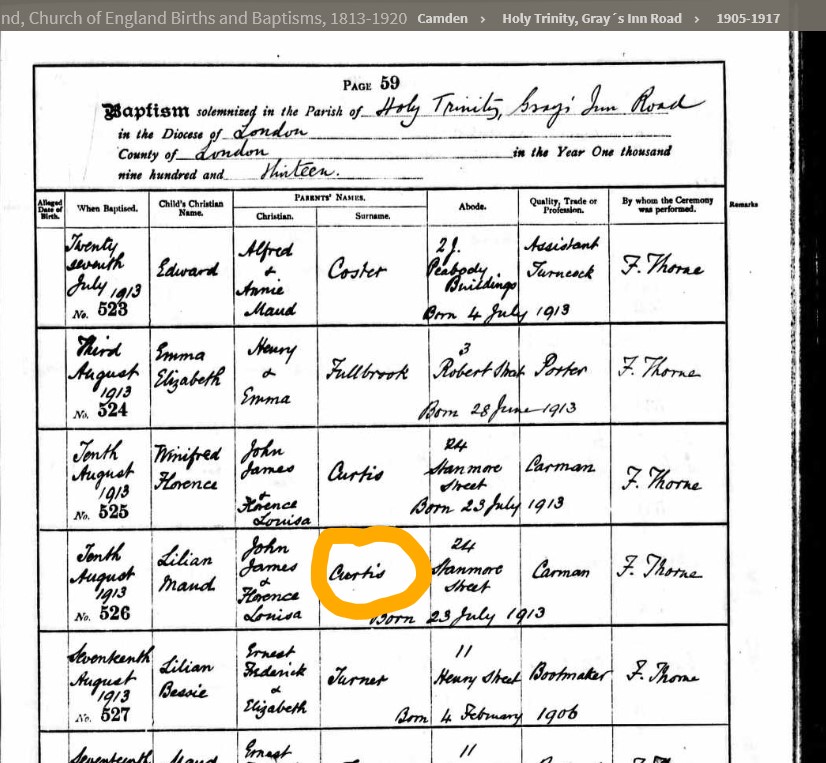 nd, Church of England Births and Baptisms, 1813-1920 Camden › Holy Trinity, Gray´s Inn Road › 1905-1917
PAGE 59
Baptism solemnized in the Parish of Holy Trinity, Gray's Inn Road
in the Diocese of London
County of London in the Year One thousand
nine hundred and thirteen.
Alleged Date of Birth.
When Baptised.
Child's Christian Name.
PARENTS' NAMES.
Christian.
Surname.
Abode.
Quality, Trade or Profession.
By whom the Ceremony was performed.
Remarks
Twenty
seventh
July 1913
No. 523
Edward
Alfred
&
Annie
Maud
Coster
2 J.
Peabody
Buildings
Assistant
Turncock
F. Thorne
Born 4 July 1913
Third
August
1913
No. 524
Emma
Elizabeth
Henry
&
Emma
Fullbrook
3
Robert Street
Porter
F. Thorne
Born 28 June 1913
Tenth
August
1913
No. 525
Winifred
Florence
John
James
&
Florence
Louisa
Curtis
24
Stanmore
Street
Carman
F. Thorne
Born 23 July 1913
Tenth
August
1913
No. 526
Lilian
Maud
John
James
&
Florence
Louisa
Curtis
24
Stanmore
Street
Carman
F. Thorne
Born 23 July 1913
Seventeenth
August
1913
No. 527
Lilian
Bessie
Ernest
Frederick
&
Elizabeth
Turner
11
Henry Street
Bootmaker
F. Thorne
Born 4 February 1906
Seventeenth
Maud
Ernest
11
F. Thorne